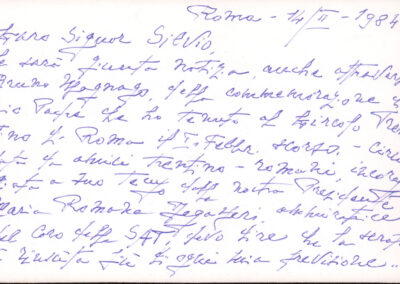 Roma - 14/II - 1984
Caro Signor Silvio,
le sarà giunta notizia, anche attraverso
Bruno Magnago, della commemorazione
mio Padre che ho tenuto al Circolo
di Roma il I Febbr. scorso. -
da amici trentino - romani,
a suo tempo dalla nostra Presidente
Maria Romana ammiratrice
del Coro della SAT, devo dire che la serata
è riuscita più di ogni mia previsione..